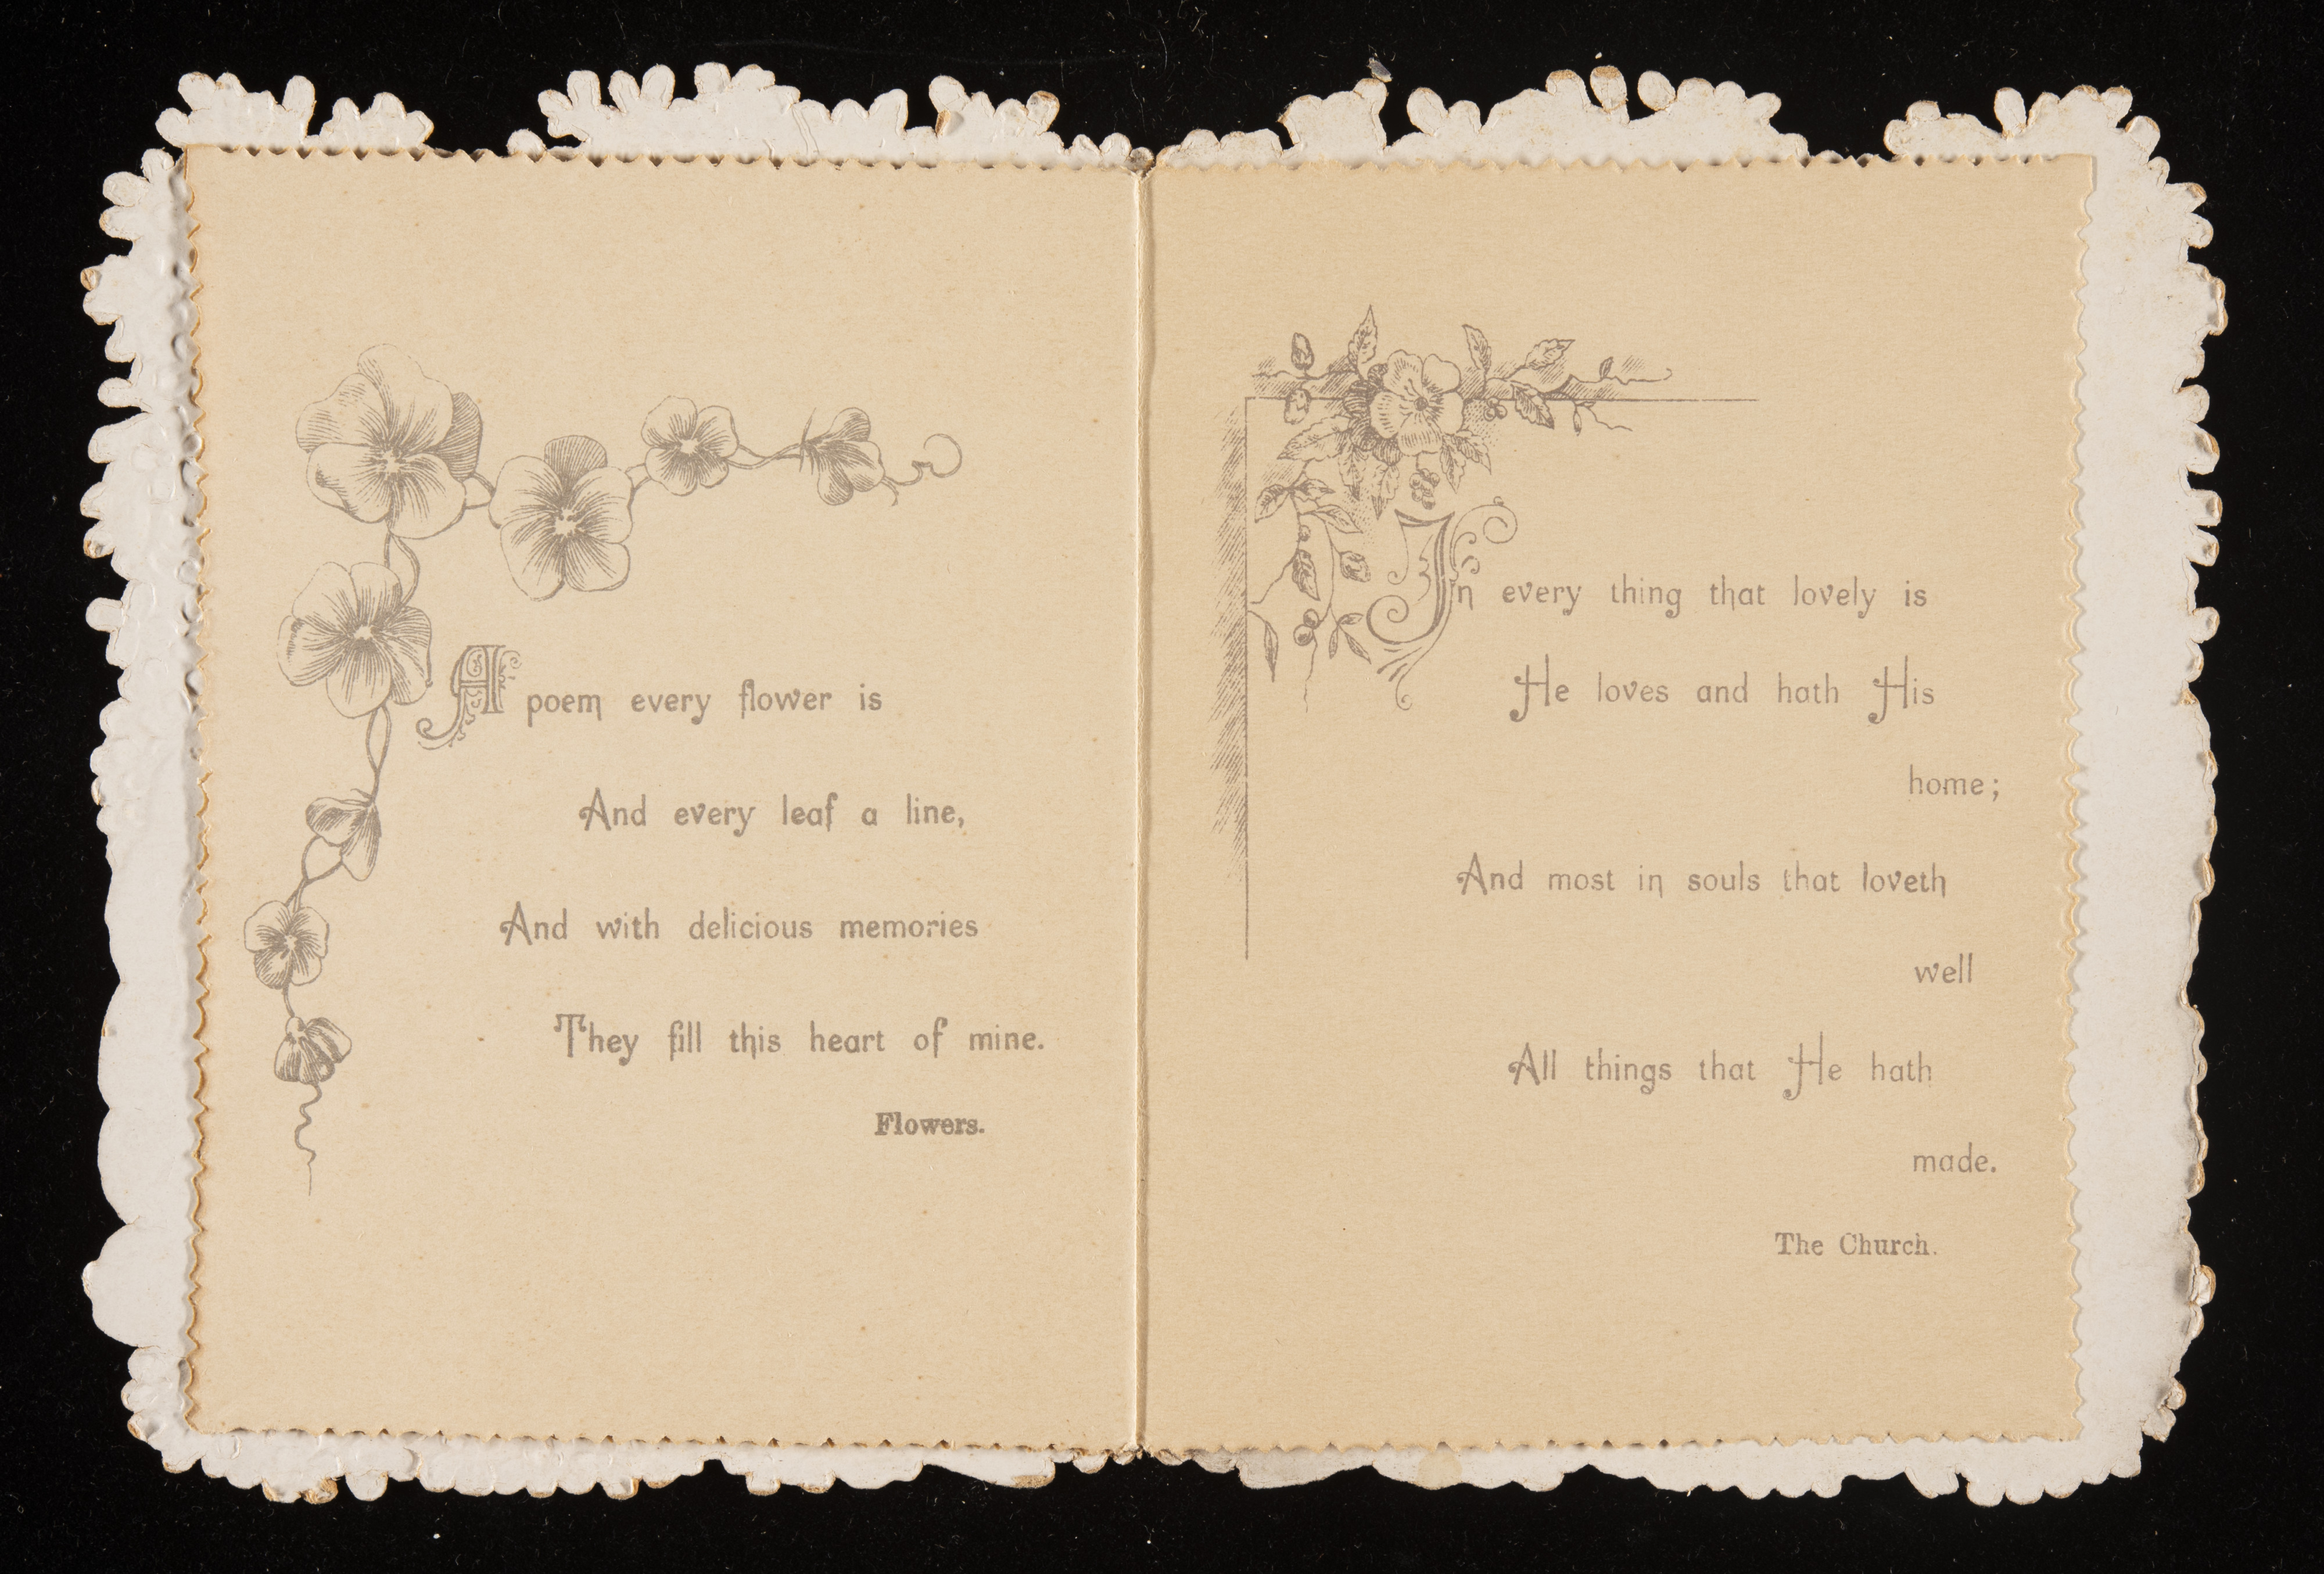 A poem every flower is
And every leaf a line,
And with delicious memories
They fill this heart of mine.
Flowers.
In every thing that lovely is
He loves and hath His
home;
And most in souls that loveth
well
All things that He hath
made.
The Church.